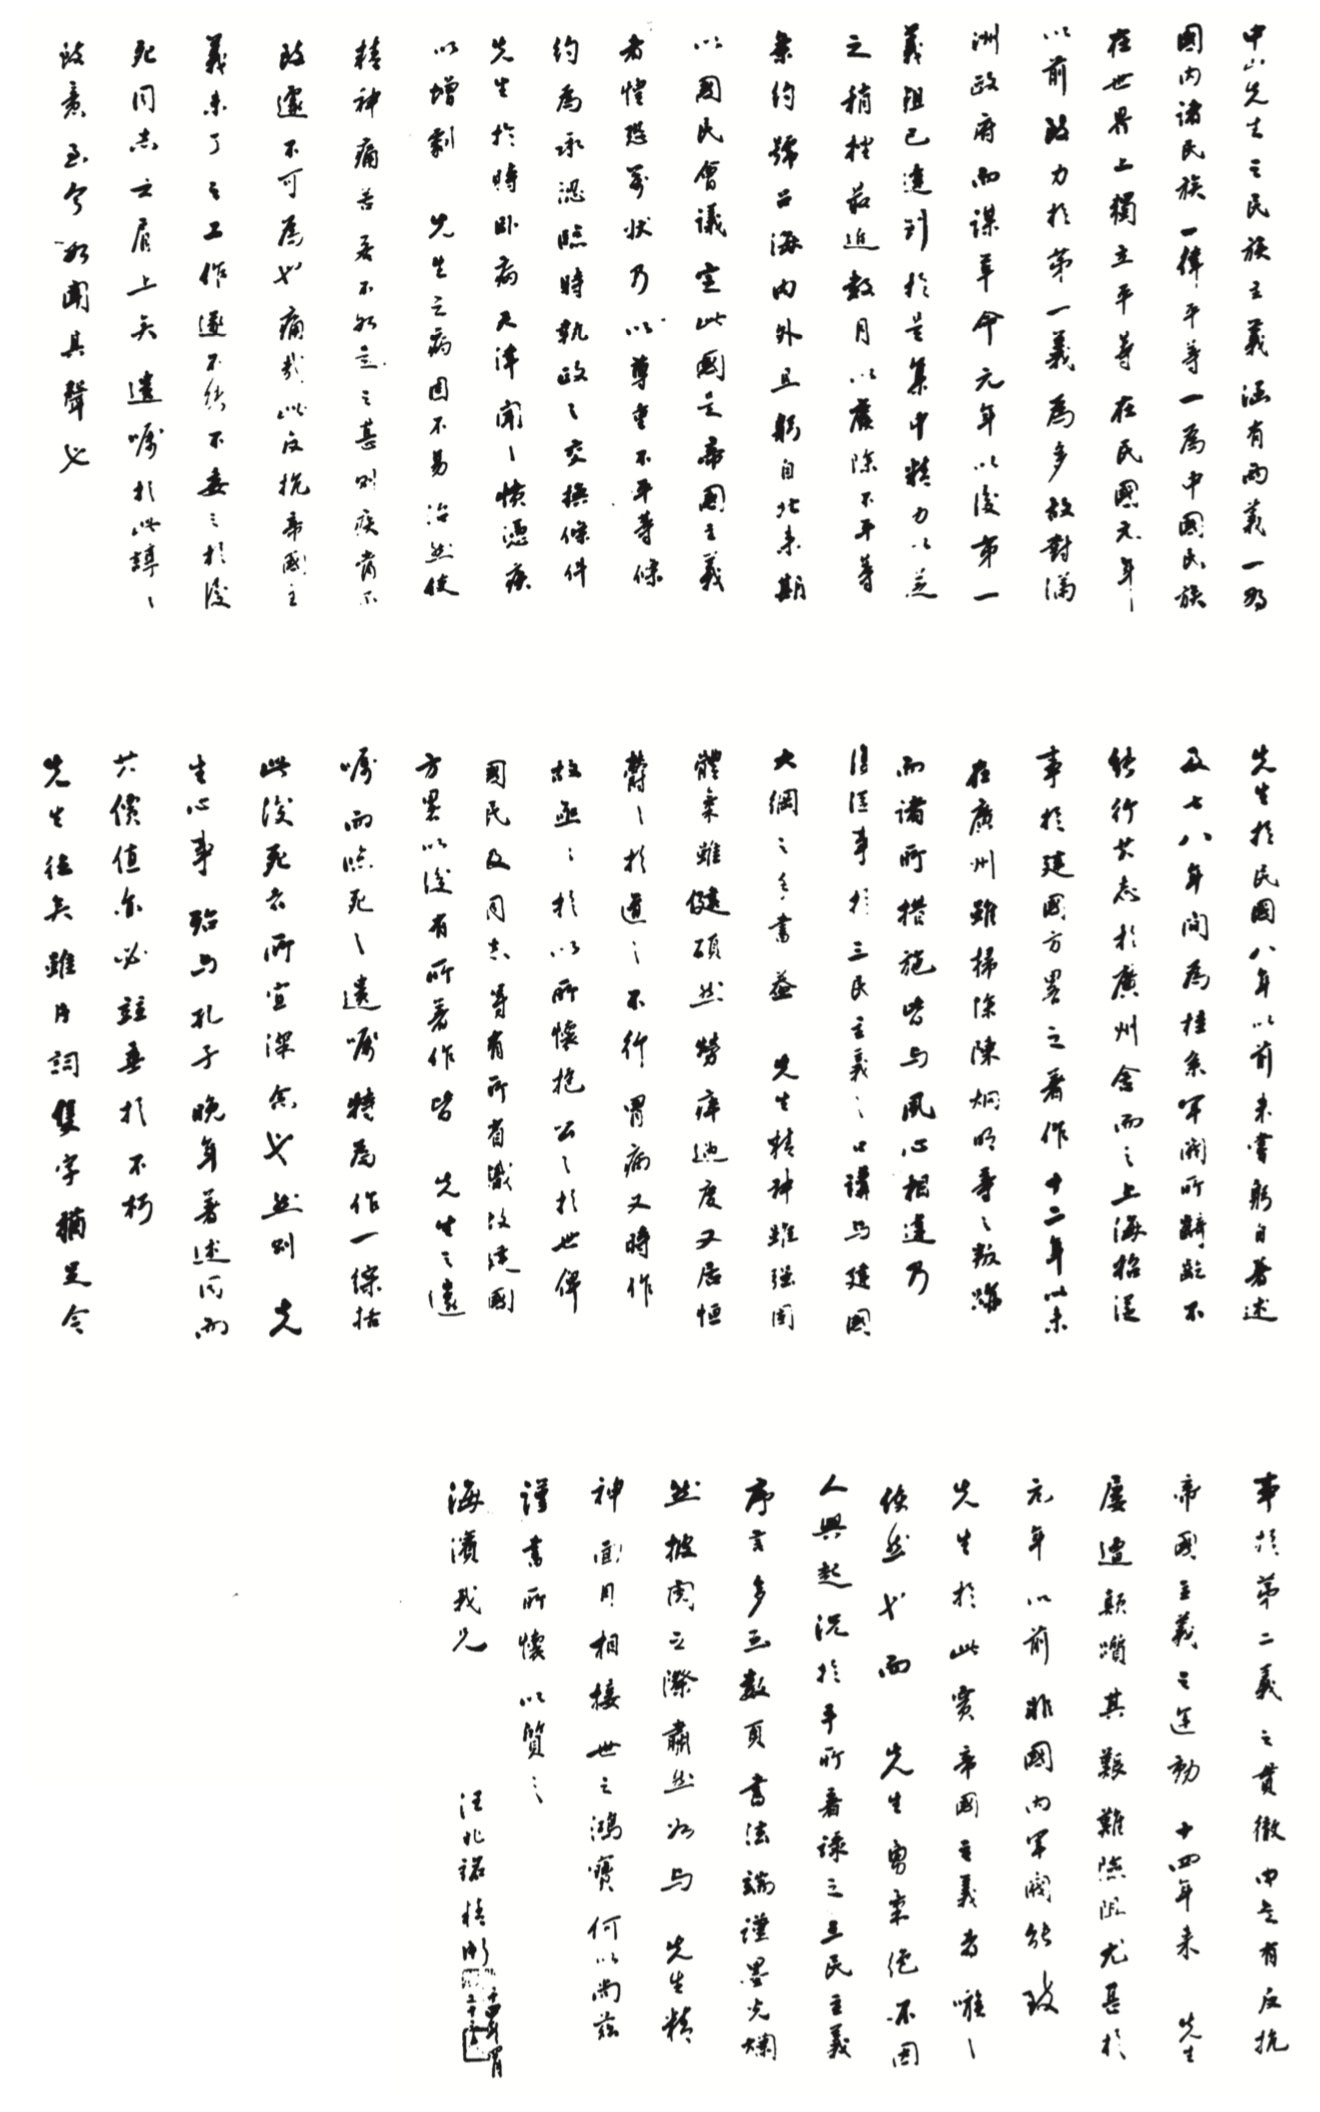 中山先生之民族主義涵有兩義一為
國內諸民族一律平等一為中國民族
在世界上獨立平等在民國元年
以前致力於第一義為多故對滿
洲政府而謀革命元年以後第一
義粗已達到於是集中精力以從
之稍挫最近數月以廢除不平等
條約號召海內外且躬自北來期
以國民會議定此國是帝國主義
者惶恐萬狀乃以尊重不平等條
約為承認臨時執政之交換條件
先生於時臥病天津聞之憤懣疾
以增劇 先生之病固不易治然使
精神痛苦若不如是之甚則疾當不
致遽不可為也痛哉此反抗帝國主
義未了之工作遂不能不委之於後
死同志之肩上矣遺囑於此諄諄
致意至今如聞其聲也
先生於民國八年以前未嘗躬自著述
及七八年間為桂系軍閥所齮齕不
能行其志於廣州舍而之上海始從
事於建國方略之著作十二年以來
在廣州雖掃除陳炯明等之叛跡
而諸所措施皆與夙心相違乃
復從事於三民主義之口講與建國
大綱之手書蓋 先生精神雖強固
體氣雖健碩然勞瘁過度又居恒
鬱鬱於道之不行胃病又時作
故亟亟於以所懷抱公之於世俾
國民及同志等有所省識故建國
方略以後有所著作皆 先生之遺
囑而臨死之遺囑特為作一綜括
此後死者所宜深念也然則 先
生心事殆與孔子晚年著述同而
其價值亦必並垂於不朽
先生往矣雖片詞隻字猶足令
事於第二義之貫徹由是有反抗
帝國主義之運動十四年來 先生
屢遭顛躓其艱難險阻尤甚於
元年以前非國內軍閥能致
先生於此實帝國主義者嗾之
使然也而 先生勇氣絕不因
人興起況於手所著錄之三民主義
序言多至數頁書法端謹墨光爛
然披閱之際肅然如與 先生精
神面目相接世之鴻寶何以尚茲
謹書所懷以質之
海濱我兄 汪兆銘精衛 十四年 月